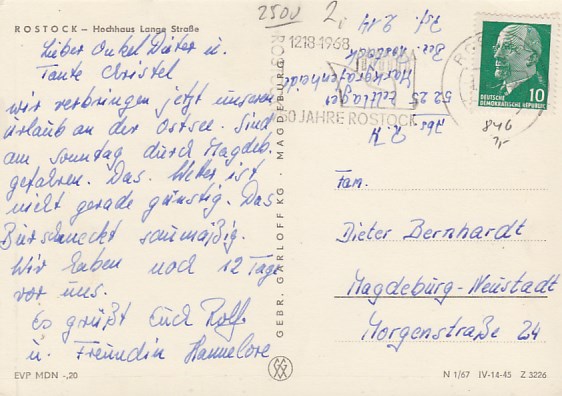 ROSTOCK – Hochhaus Lange Straße
Lieber Onkel Dieter u.
Tante Christel
wir verbringen jetzt unseren
Urlaub an der Ostsee. Sind
am Sonntag durch Magdeb.
gefahren. Das Wetter ist
nicht gerade günstig. Das
Bier schmeckt saumäßig.
Wir haben noch 12 Tage
vor uns.
Es grüßt Euch Rolf
u. Freundin Hannelore
EVP MDN -,20
GEBR. GARLOFF KG · MAGDEBURG
2500
2,-
1218·1968
750 JAHRE ROSTOCK
DEUTSCHE
DEMOKRATISCHE REPUBLIK
10
846
Abs
5225
Zeltlager
Markgrafenheide
Bez. Rostock
Fam.
Dieter Bernhardt
Magdeburg-Neustadt
Morgenstraße 24
N 1/67 IV-14-45 Z 3226